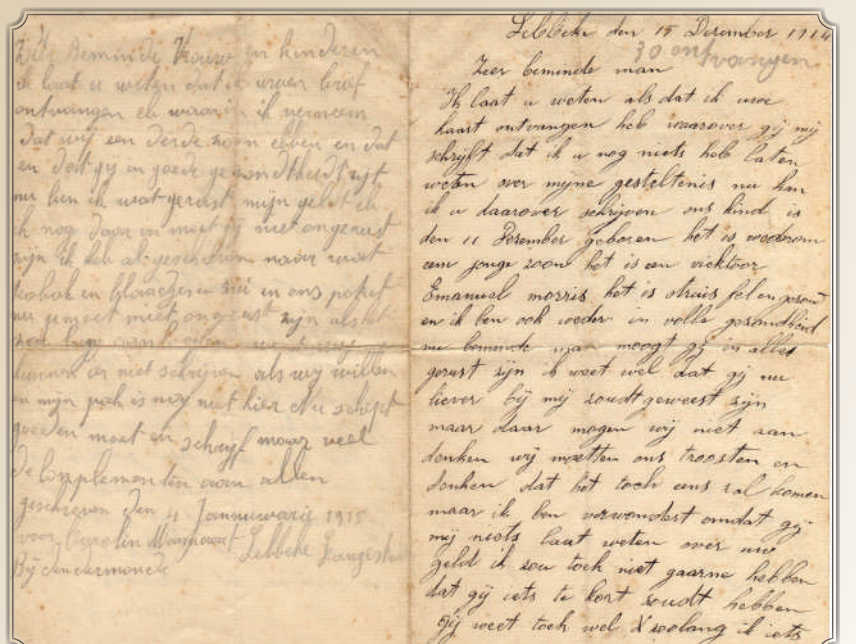 Zeer Beminde Vrouw en kinderen
ik laat u weten dat ik uwen brief
ontvangen eb waarin ik verneem
dat wij een derde zoon ebben en dat
en dat gij in goede gezondtheidt zijt
nu ben ik wat gerust mijn gelt eb
ik nog daar in moet gij niet ongerust
zijn ik heb al geschreven naar wat
tobak en blaadjes en in ons poket
nu gemoet niet ongerust zijn als het
wat lange aan
kunnen er niet schrijven als wij willen
en mijn pak is nog niet hier Nu schept
goeden moet en schrijf maar veel
de Complementen aan allen
geschreven den 4 Jannuwarie 1915
voor Carolin Lebbeke
Bij dendermonde
Lebbeke den 15 Desember 1914
30 ontvangen
Zeer beminde man
Ik laat u weten als dat ik uwe
kaart ontvangen heb waarover gij mij
schrijft dat ik u nog niets heb laten
weten over myne gesteltenis nu kan
ik u daarover schrijven ons kind is
den 11 Desember geboren het is wederom
een jonge zoon het is een vicktoor
Emanuel morris het is struis fel en gesond
en ik ben ook weder in volle gesondheid
nu beminde man moogt gij in alles
gerust sijn ik weet wel dat gij nu
liever bij mij soudt geweest sijn
maar daar mogen wij niet aan
denken wij moetten ons troosten en
denken dat het toch eens sal komen
maar ik ben verwondert omdat gij
mij niets laat weten over uw
geld ik sou toch niet gaarne hebben
dat gij iets te kort soudt hebben
gij weet toch wel X soolang ik iets